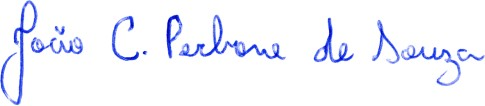 João C. Perbone de Souza